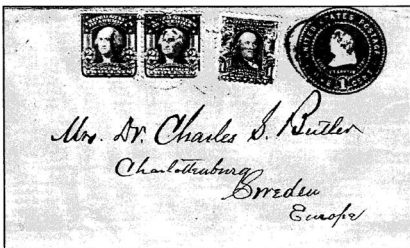 UNITED STATES POSTAGE
1
Mrs. Dr. Charles S. Butler
Charlottenburg
Sweden
Europe